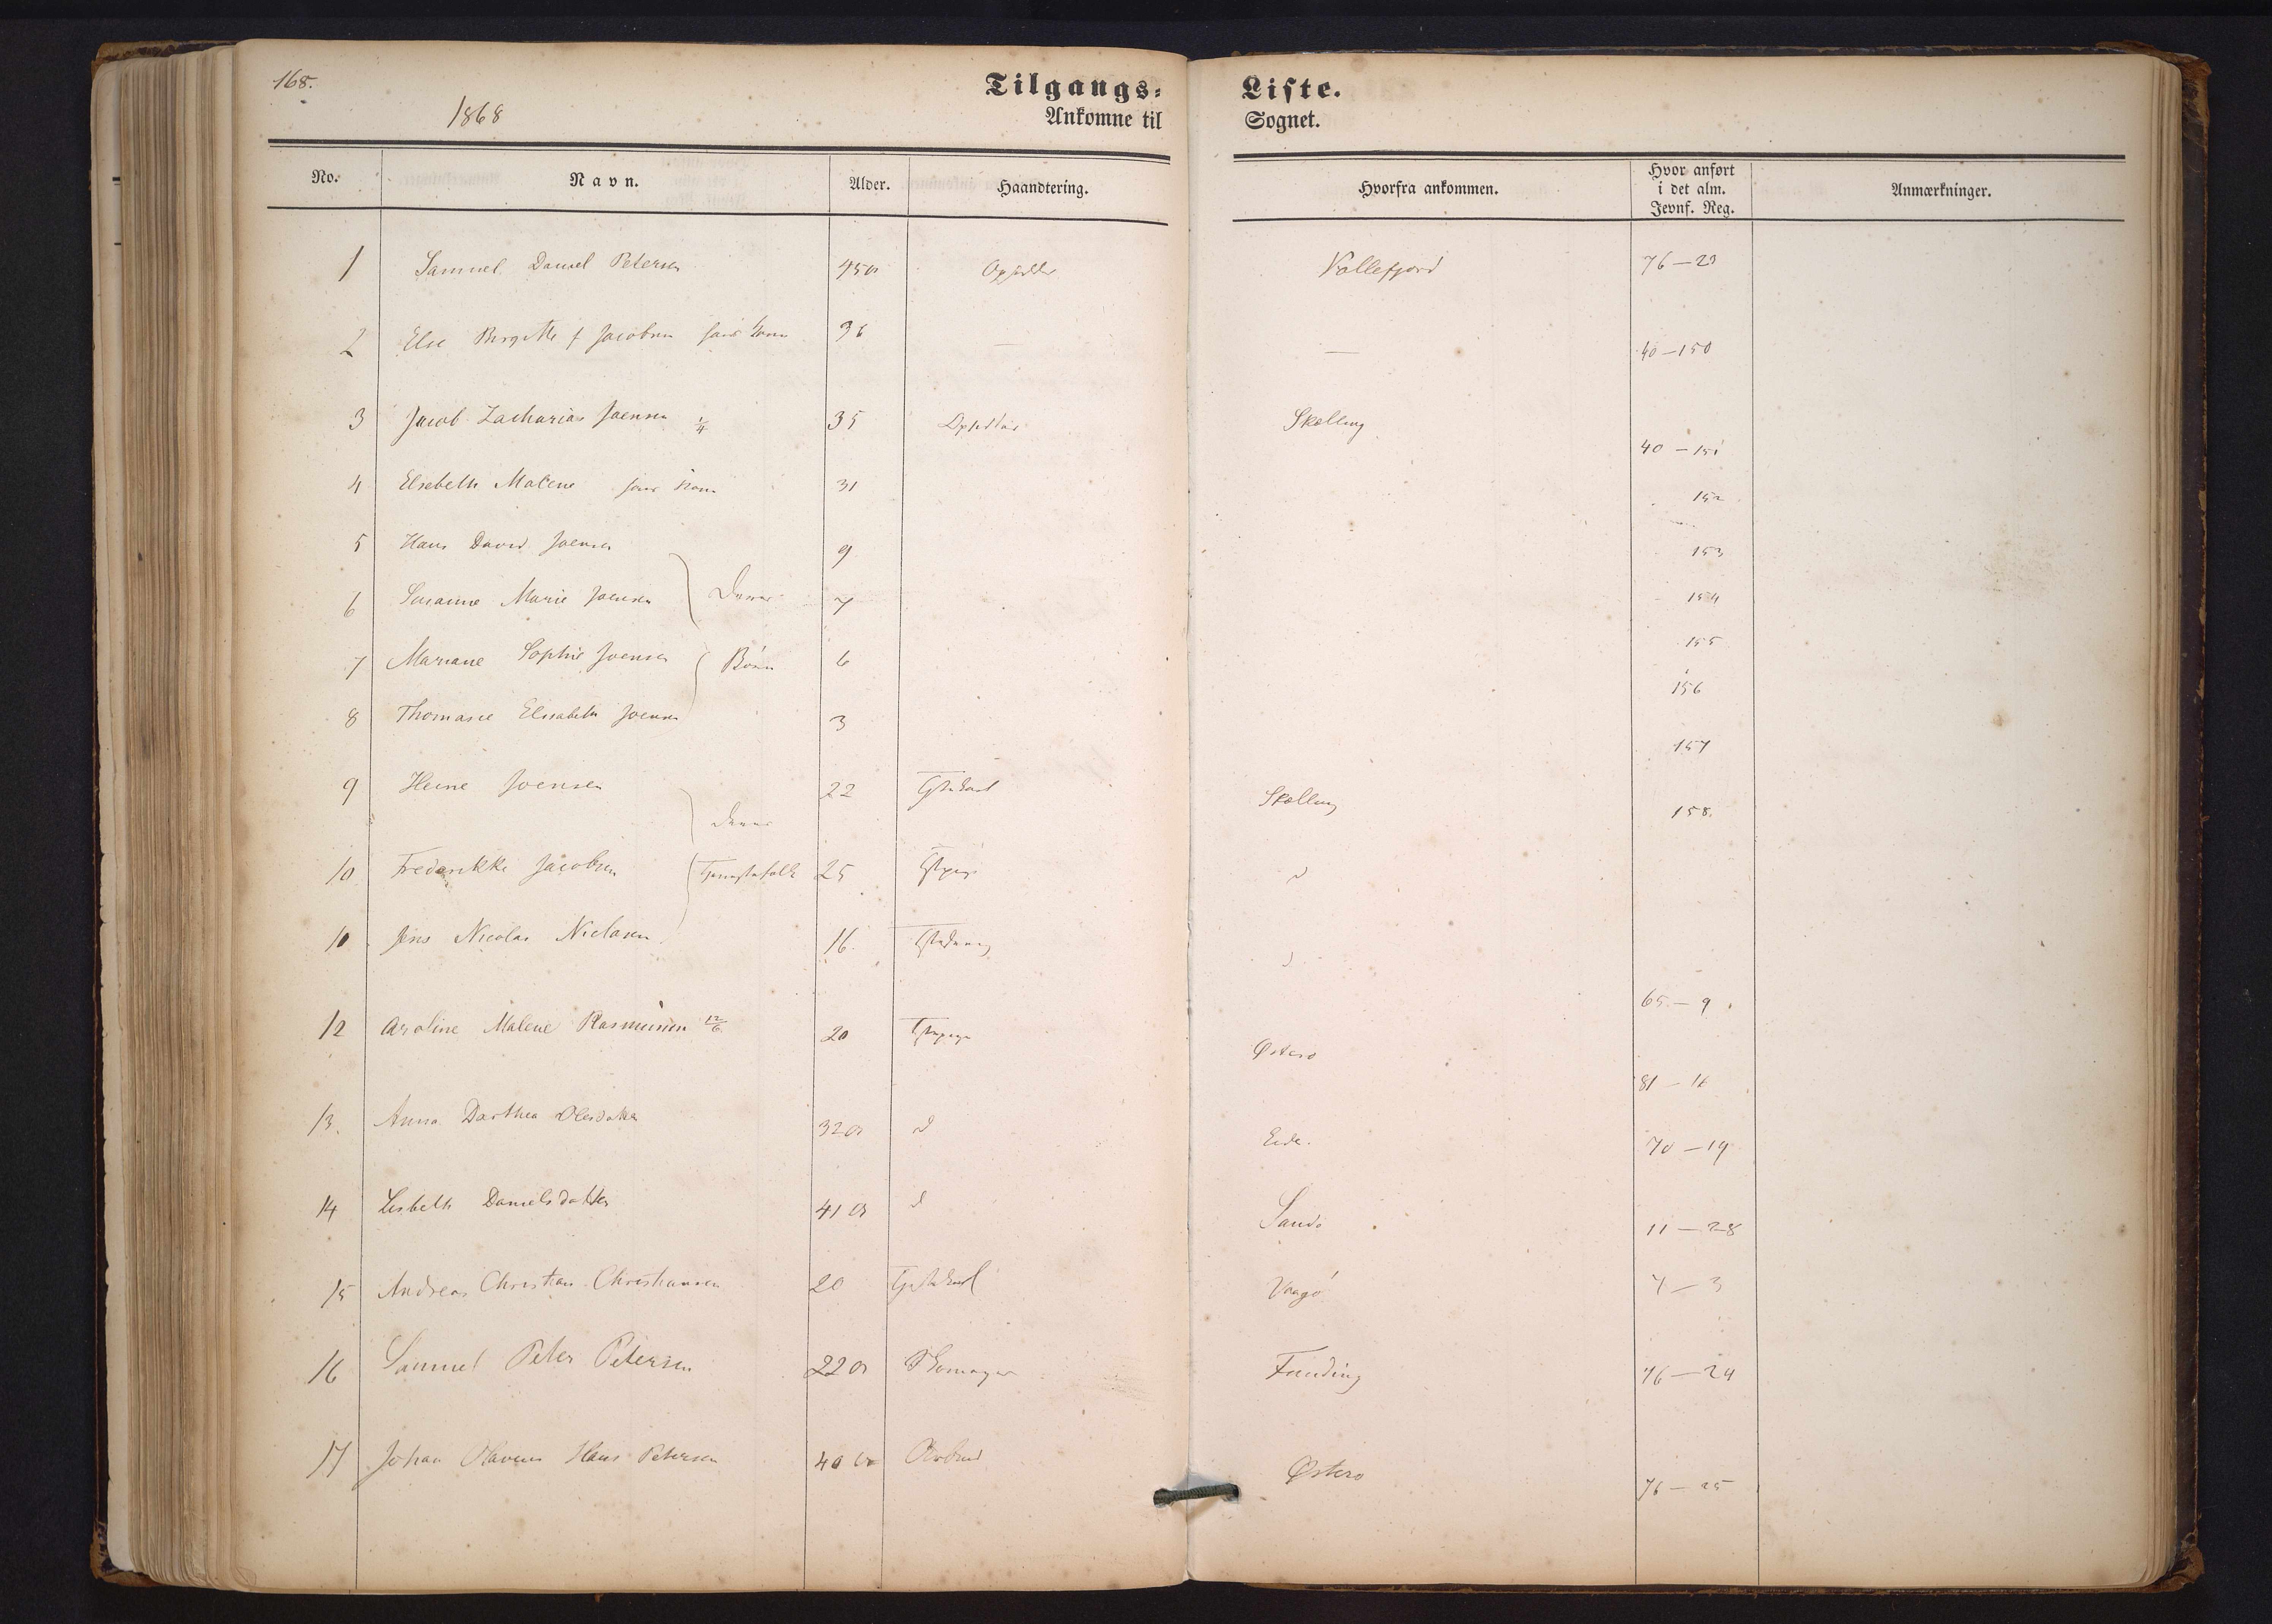 168.
1868
Tilgangs-Liste.
Ankomne til Sognet.
No. Navn. Alder. Haandtering. Hvorfra ankommen. Hvor anført i det alm. Jevnf. Reg. Anmærkninger.
1 Samuel Daniel Petersen 45 Kollefjord 76-23
2 Else Birgitte f Jacobsen hans Kone 36 — — 40-150
3 Jacob Zacharias Joensen 1/4 35 Skælling 40-151
4 Elsebeth Malene hans Kone 31 152
5 Hans David Joensen 9 153
6 Susanne Marie Joensen Deres 7 154
7 Mariane Sophie Joensen Børn 6 155
8 Thomasie Elisabeth Joensen 3 156
157
9 Heine Joensen 22 Skælling 158.
Deres
10 Frederikke Jacobsen Tjenestefolk 25 d
10 Jens Nicolai Nielsen 16. d
12 Caroline Malene Rasmussen 12/6 20 Østerø 65-9
81-
13. Anna Dorthea Olesdatter 32 d Eide. 70-19
14 Lisbeth Danielsdatter 41 d Sandø 11-28
15 Andreas Christian Christiansen 20 Vaagø 7-3
16 Samuel Peter Petersen 22 Skomager Funding 76-24
17 Johan Olavus Hans Petersen 40 Østerø 76-25